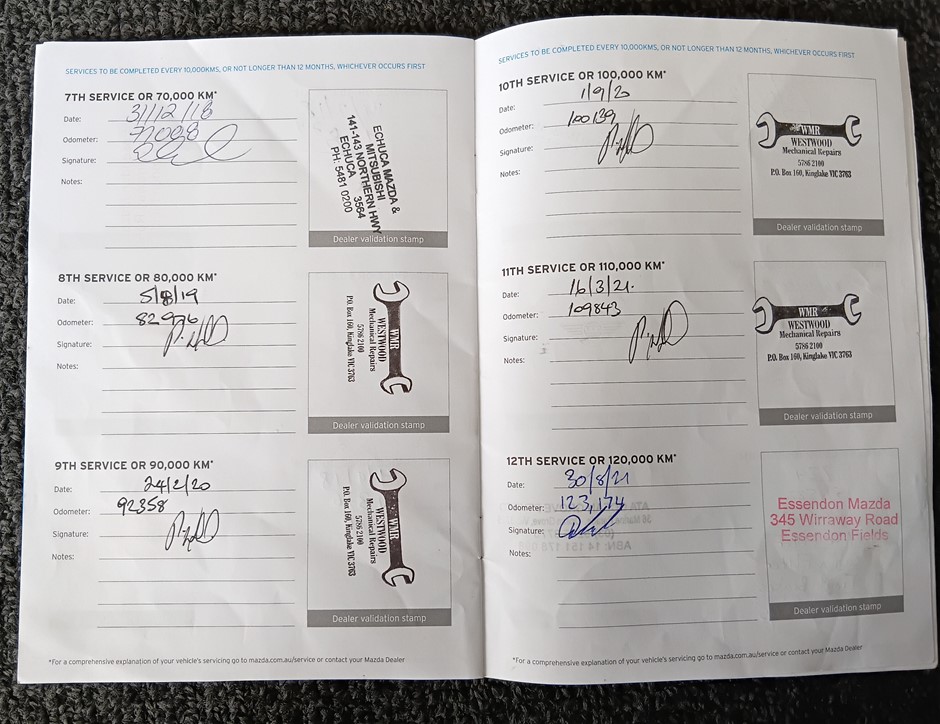 SERVICES TO BE COMPLETED EVERY 10,000KMS, OR NOT LONGER THAN 12 MONTHS, WHICHEVER OCCURS FIRST
7TH SERVICE OR 70,000 KM*
Date: 31/12/18
Odometer: 72008
Signature:
Notes:
ECHUCA MAZDA &
MITSUBISHI
141-143 NORTHERN HWY
ECHUCA 3564
PH: 5481 0200
Dealer validation stamp
8TH SERVICE OR 80,000 KM*
Date: 5/8/19
Odometer: 82976
Signature:
Notes:
WMR
WESTWOOD
Mechanical Repairs
5786 2100
P.O. Box 160, Kinglake VIC 3763
Dealer validation stamp
9TH SERVICE OR 90,000 KM*
Date: 24/2/20
Odometer: 92358
Signature:
Notes:
WMR
WESTWOOD
Mechanical Repairs
5786 2100
P.O. Box 160, Kinglake VIC 3763
Dealer validation stamp
*For a comprehensive explanation of your vehicle's servicing go to mazda.com.au/service or contact your Mazda Dealer
SERVICES TO BE COMPLETED EVERY 10,000KMS, OR NOT LONGER THAN 12 MONTHS, WHICHEVER OCCURS FIRST
10TH SERVICE OR 100,000 KM*
Date: 1/9/20
Odometer: 100139
Signature:
Notes:
WMR
WESTWOOD
Mechanical Repairs
5786 2100
P.O. Box 160, Kinglake VIC 3763
Dealer validation stamp
11TH SERVICE OR 110,000 KM*
Date: 16/3/21.
Odometer: 109843
Signature:
Notes:
WMR
WESTWOOD
Mechanical Repairs
5786 2100
P.O. Box 160, Kinglake VIC 3763
Dealer validation stamp
12TH SERVICE OR 120,000 KM*
Date: 30/8/21
Odometer: 123,174
Signature:
Notes:
Essendon Mazda
345 Wirraway Road
Essendon Fields
Dealer validation stamp
*For a comprehensive explanation of your vehicle's servicing go to mazda.com.au/service or contact your Mazda Dealer